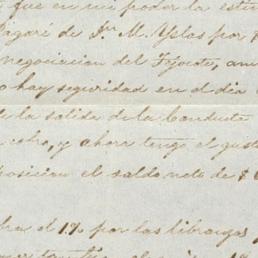 que en mi poder la esti
Pagaré de Dn M. Yslas por $
negociacion del Fijorte, aun
o hay seguridad en el dia
e la salida de la Conducta
cobro, y ahora tengo el gust
posicion el saldo neto de $
bra el 1% por las libranzas